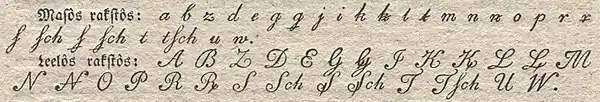 Masôs rakstôs: a b z d e g ꞡ j i k ꞣ l ł m n ꞥ o p r ꞧ
ſ ſch ẜ ẜch t tſch u w.
Leelôs rakstôs: A B Z D E G Ꞡ J K Ꞣ L Ł M
N Ꞥ O P R Ꞧ S Sch Ꞩ Ꞩch T Tſch U W.